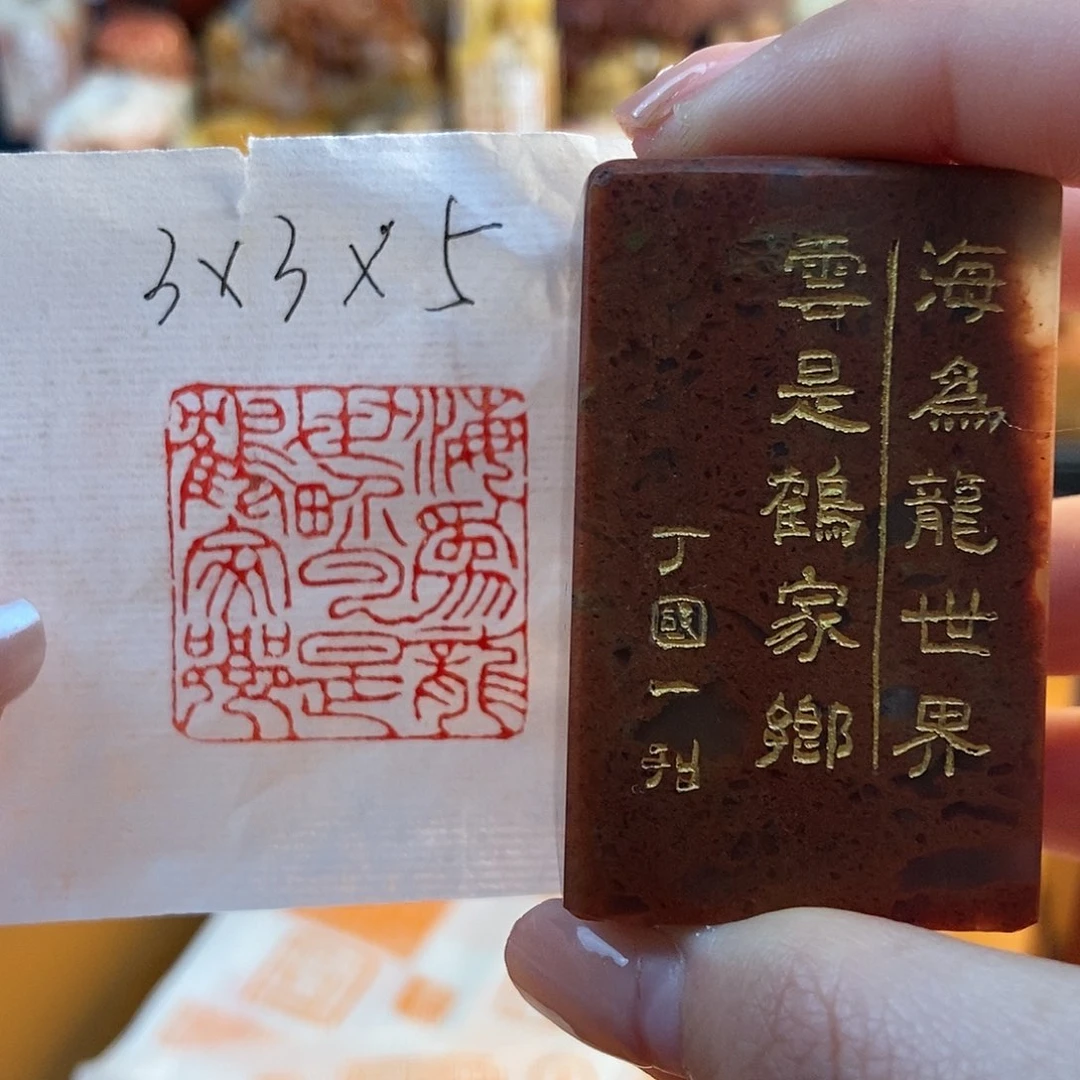 3x3x5
海為龍
世界云是
鶴家鄉
海為龍世界
雲是鶴家鄉
丁國一